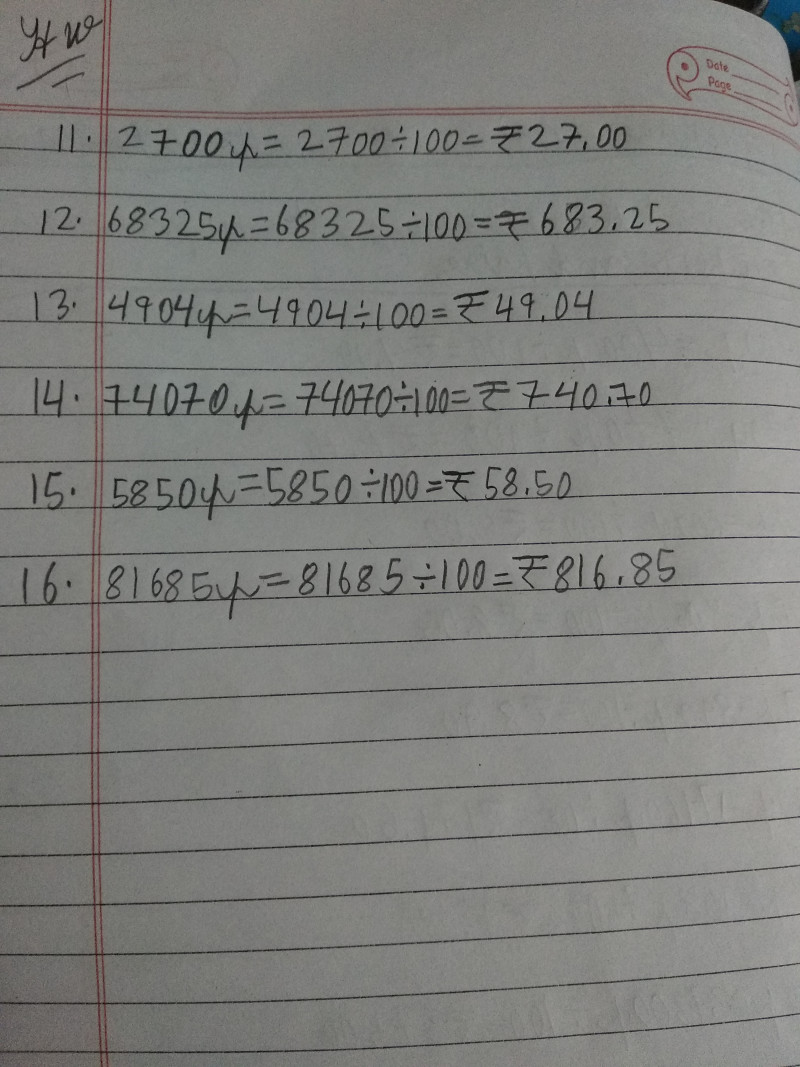 H W
Date
Page
11. 2700p = 2700÷100 = ₹27.00
12. 68325p = 68325÷100 = ₹683.25
13. 4904p = 4904÷100 = ₹49.04
14. 74070p = 74070÷100 = ₹740.70
15. 5850p = 5850÷100 = ₹58.50
16. 81685p = 81685÷100 = ₹816.85